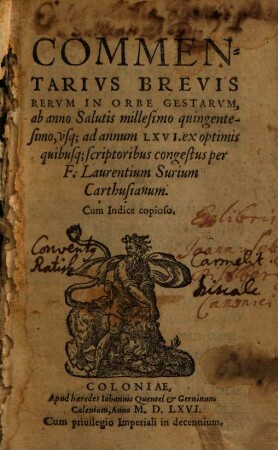 COMMEN-
TARIVS BREVIS
RERVM IN ORBE GESTARVM,
ab anno Salutis millesimo quingente-
simo, vsq; ad annum LXVI. ex optimis
quibusq; scriptoribus congestus per
F. Laurentium Surium
Carthusianum.
Cum Indice copioso.
Ex libris
Joannis
Conventꝰ
Carmelit
Ratisb
COLONIAE,
Apud hæredes Iohannis Quentel & Geruinum
Calenium, Anno M. D. LXVI.
Cum priuilegio Imperiali in decennium.